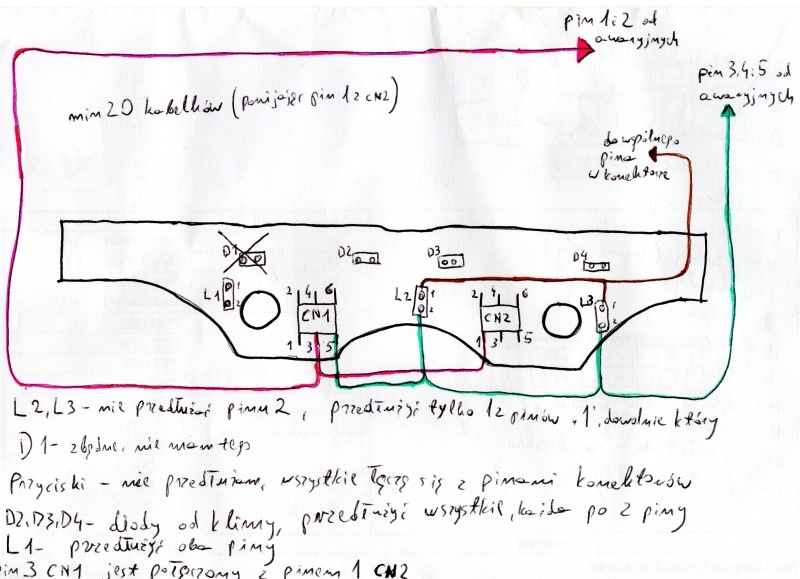 pin 1i2 od
awaryjnych
pin 3,4i5 od
awaryjnych
min 20 kabelków (pomijając pin 1 z CN2)
do wspólnego
pina
w konektorze
D1
D2
D3
D4
L1
1
2
2 4 6
CN1
1 3 5
L2
1
2
2 4 6
CN2
1 3 5
L3
1
2
L2, L3 - nie przedłużać pinu 2, przedłużyć tylko 1 z pinów "1", dowolnie który
D1 - zbędne, nie mam tego
Przyciski - nie przedłużam, wszystkie łączą się z pinami konektorów
D2, D3, D4 - diody od klimy, przedłużyć wszystkie, każda po 2 piny
L1 - przedłużyć oba piny
pin 3 CN1 jest połączony z pinem 1 CN2